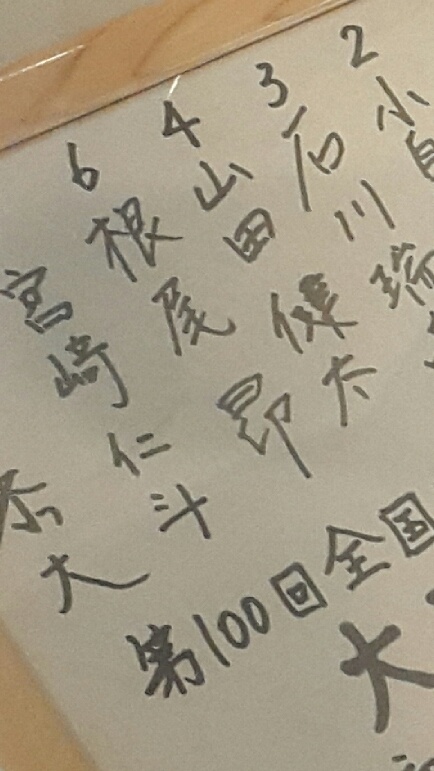 2 小
3 石川瑞
4 山田健太
6 根尾昂
宮崎仁斗
恭大
第100回全国
大